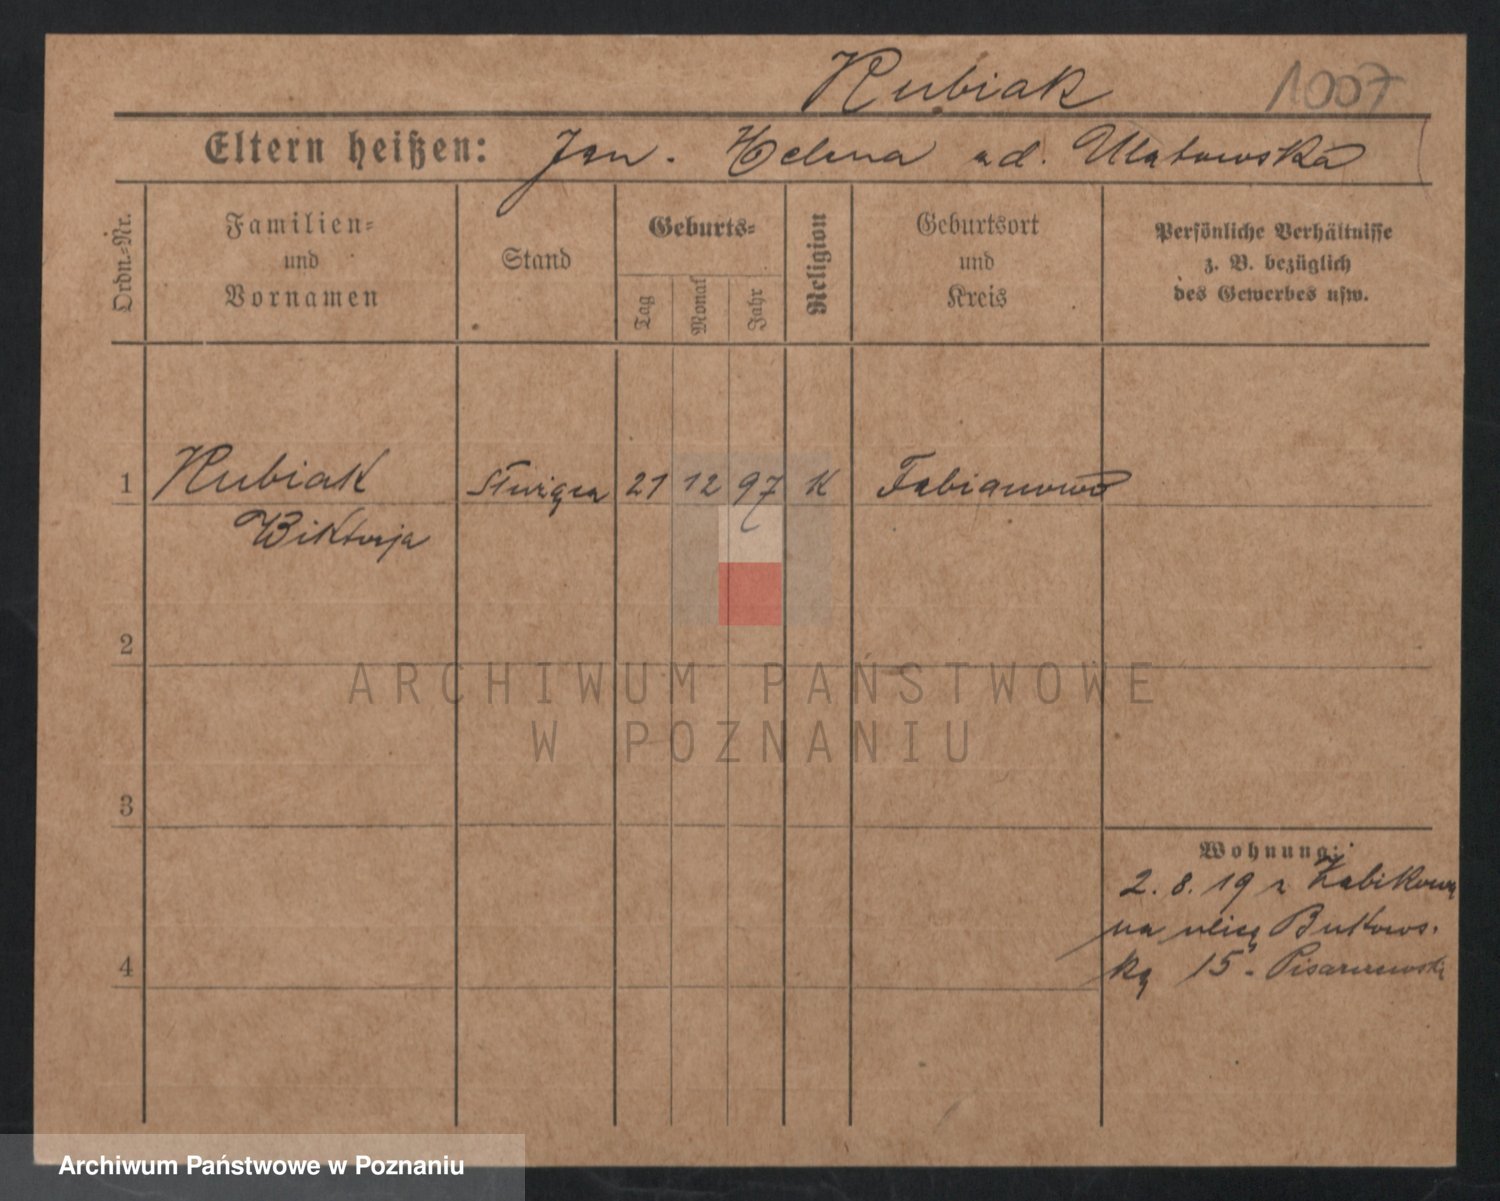 Kubiak 1007
Eltern heißen: Jan. Helena zd. Ulatowska
Ordn.-Nr.
Familien-
und
Vornamen
Stand
Geburts-
Tag
Monat
Jahr
Religion
Geburtsort
und
Kreis
Persönliche Verhältnisse
z. B. bezüglich
des Gewerbes usw.
1 Kubiak służąca 21 12 97 K Fabianowo
Wiktorja
2
ARCHIWUM PAŃSTWOWE
W POZNANIU
3
Wohnung:
2. 8. 19 z Żabikowa
na ulicę Bukows-
ką 15. Pisarzewski
4
Archiwum Państwowe w Poznaniu